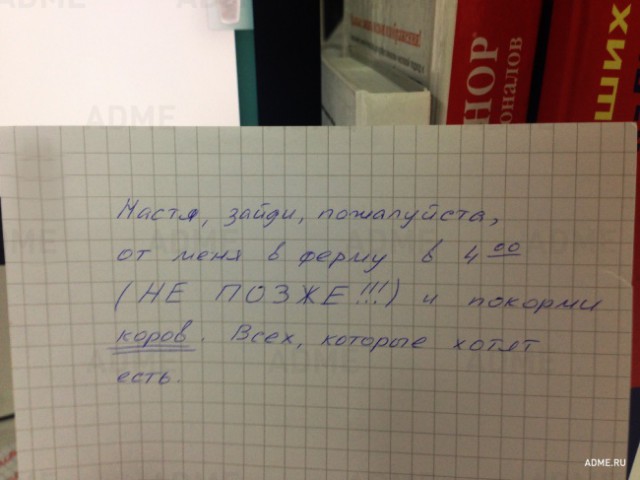 НОР
оналов
ХИЩ
ADME
Настя, зайди, пожалуйста,
от меня в ферму в 4 00
(НЕ ПОЗЖЕ!!!) и покорми
коров. Всех, которые хотят
есть.
ADME.RU